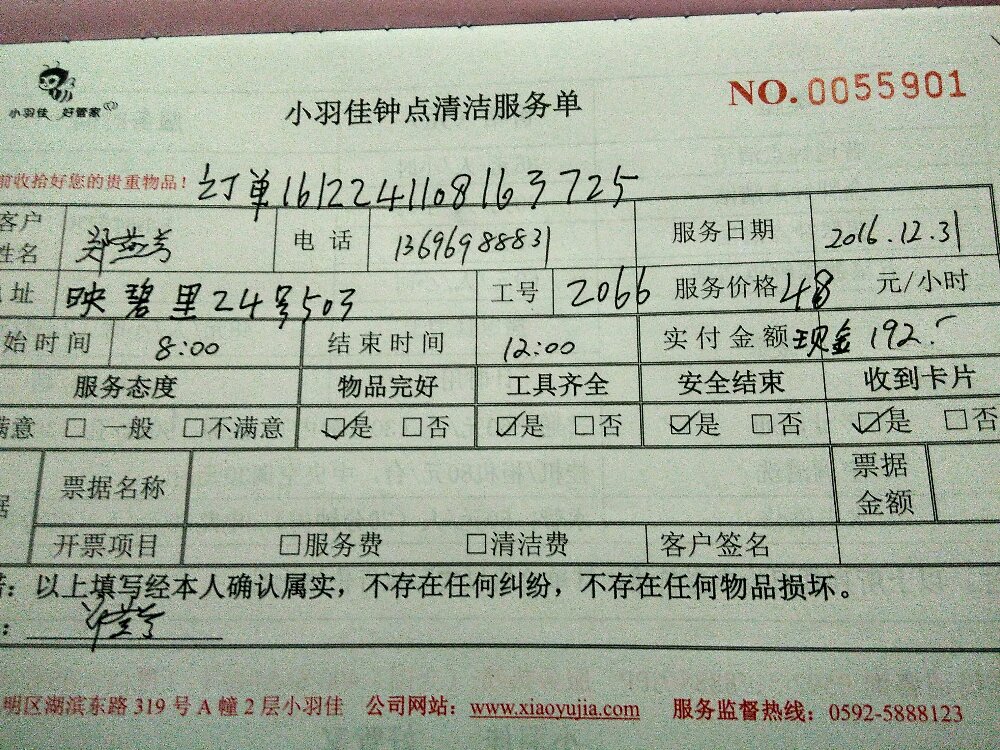 小羽佳 好管家
小羽佳钟点清洁服务单
NO. 0055901
前收拾好您的贵重物品！ 订单161224110816 3725
客户姓名 郑燕芳 电话 13696988831 服务日期 2016.12.31
址 映碧里24号503 工号 2066 服务价格 48 元/小时
始时间 8:00 结束时间 12:00 实付金额 现金192.
服务态度 物品完好 工具齐全 安全结束 收到卡片
满意 □ 一般 □不满意 ☑是 □否 ☑是 □否 ☑是 □否 ☑是 □否
据 票据名称 票据金额
开票项目 □服务费 □清洁费 客户签名
：以上填写经本人确认属实，不存在任何纠纷，不存在任何物品损坏。
：郑燕芳
明区湖滨东路 319 号 A 幢 2 层小羽佳 公司网站：www.xiaoyujia.com 服务监督热线：0592-5888123